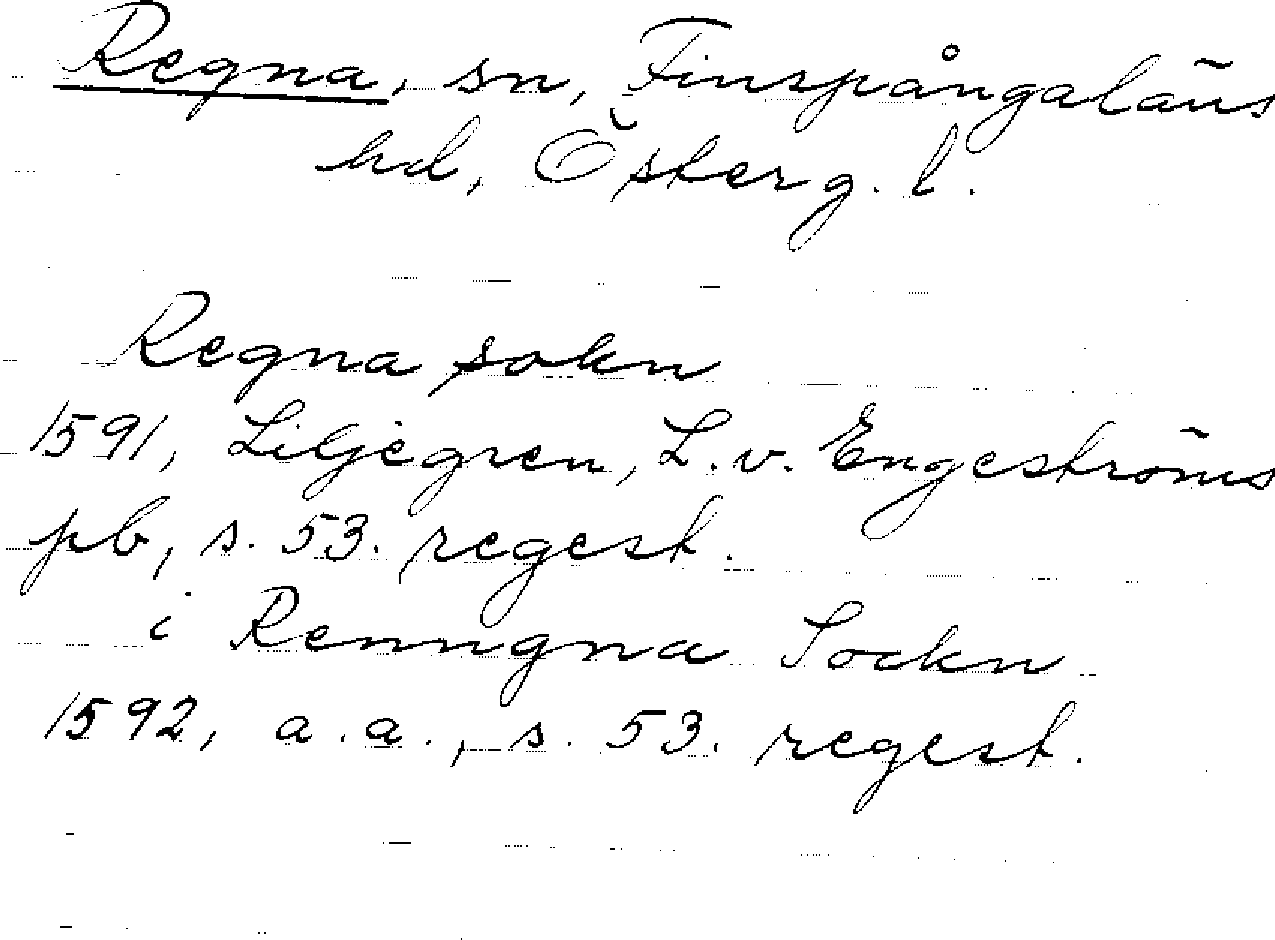 Regna, sn, Finspångaläns
hd, Österg. l.
Regna sokn
1591, Liljegren, L. v. Engeströms
pb, s. 53. regest.
i Renngna Sockn
1592, a.a., s. 53. regest.